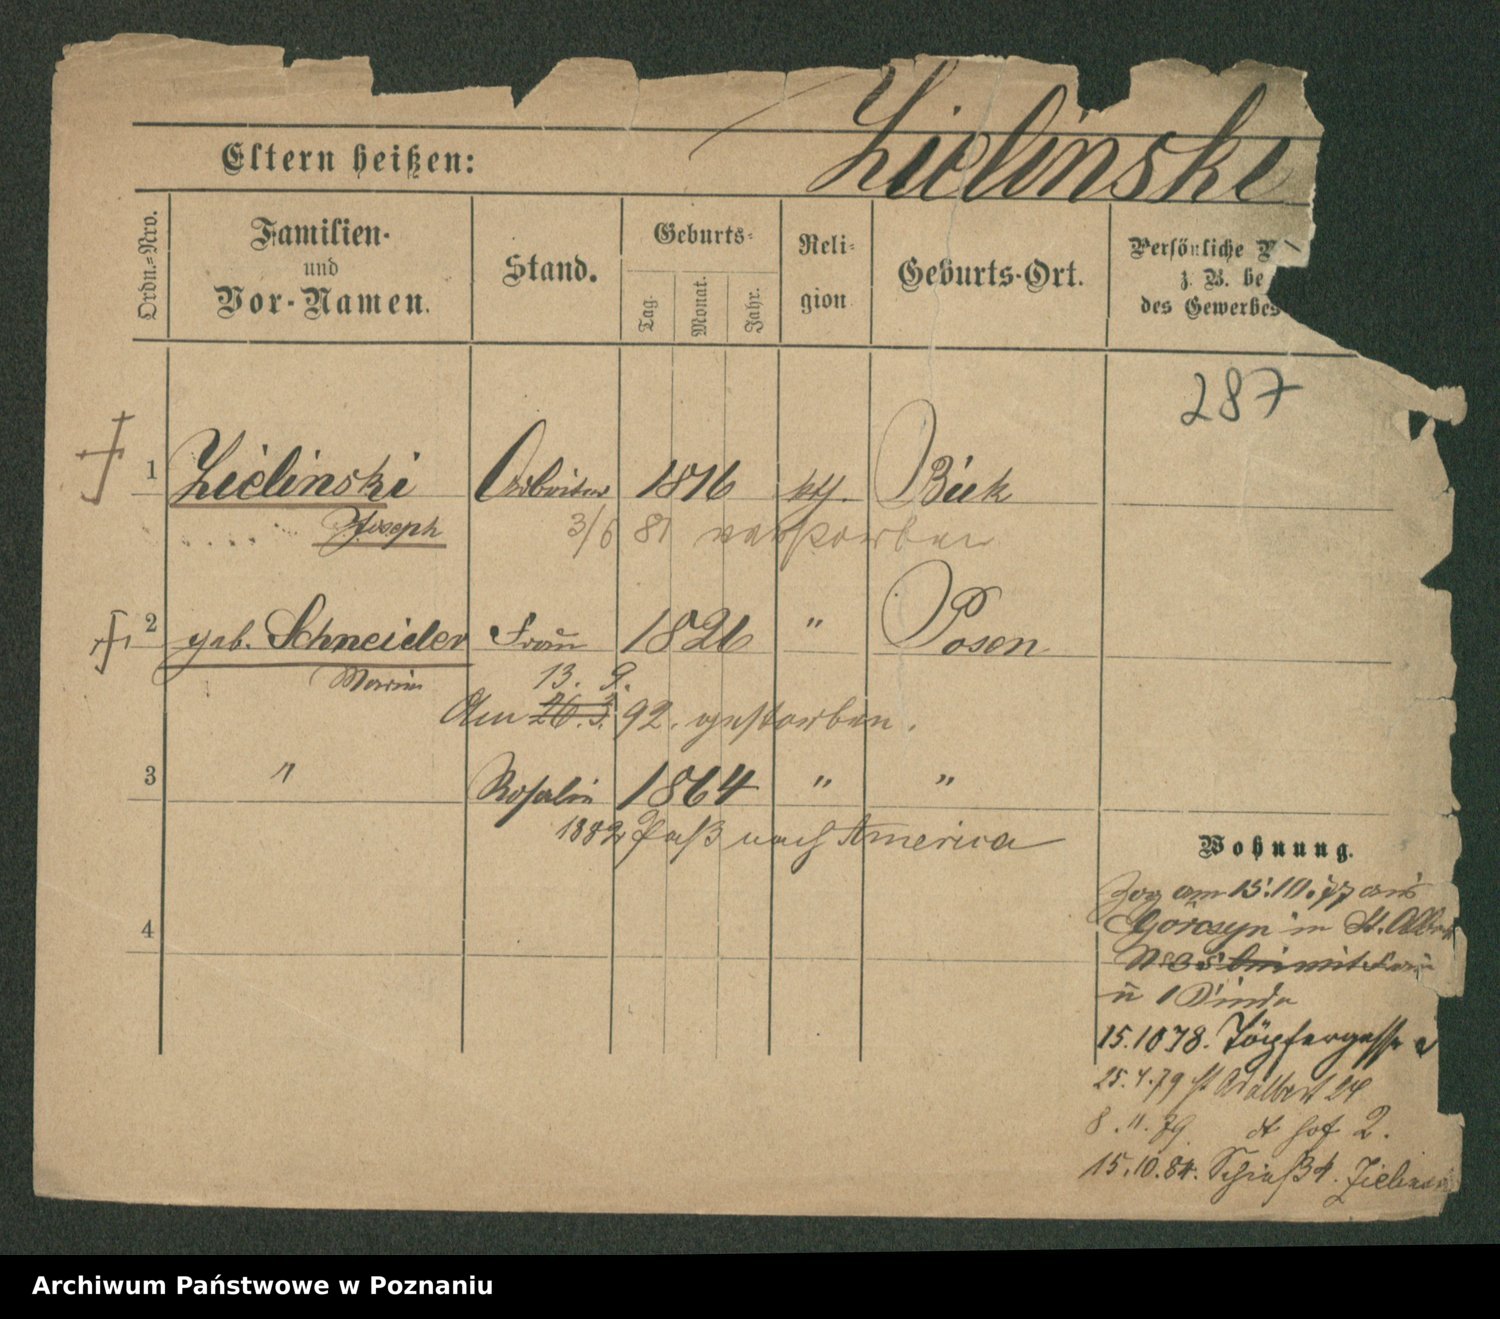 Zielinski
Eltern heißen:
Ordn.=Nro.
Familien-
und
Vor-Namen.
Stand.
Geburts=
Tag.
Monat.
Jahr.
Reli=
gion
Geburts-Ort.
Persönliche V
z. B. be
des Gewerbes
287
1 Zielinski Arbeiter 1816 kth. Buk
Joseph 3/6 81 verstorben
2 geb. Schneider Frau 1826 " Posen
Marie 13. 9.
Am 26. 3. 92. gestorben.
3 " Rosalie 1864 " "
1882 Paß nach America
4
Wohnung.
Zog am 15.10.77 aus
Gorczyn in St. Adbert
mit Frau
u 1 Kinde
15.10 78. Töpfergasse 2
25.4.79 St Adalbert 24
8.11.79. dt Hof 2.
15.10.84. Schießst 4. Zielinski
Archiwum Państwowe w Poznaniu